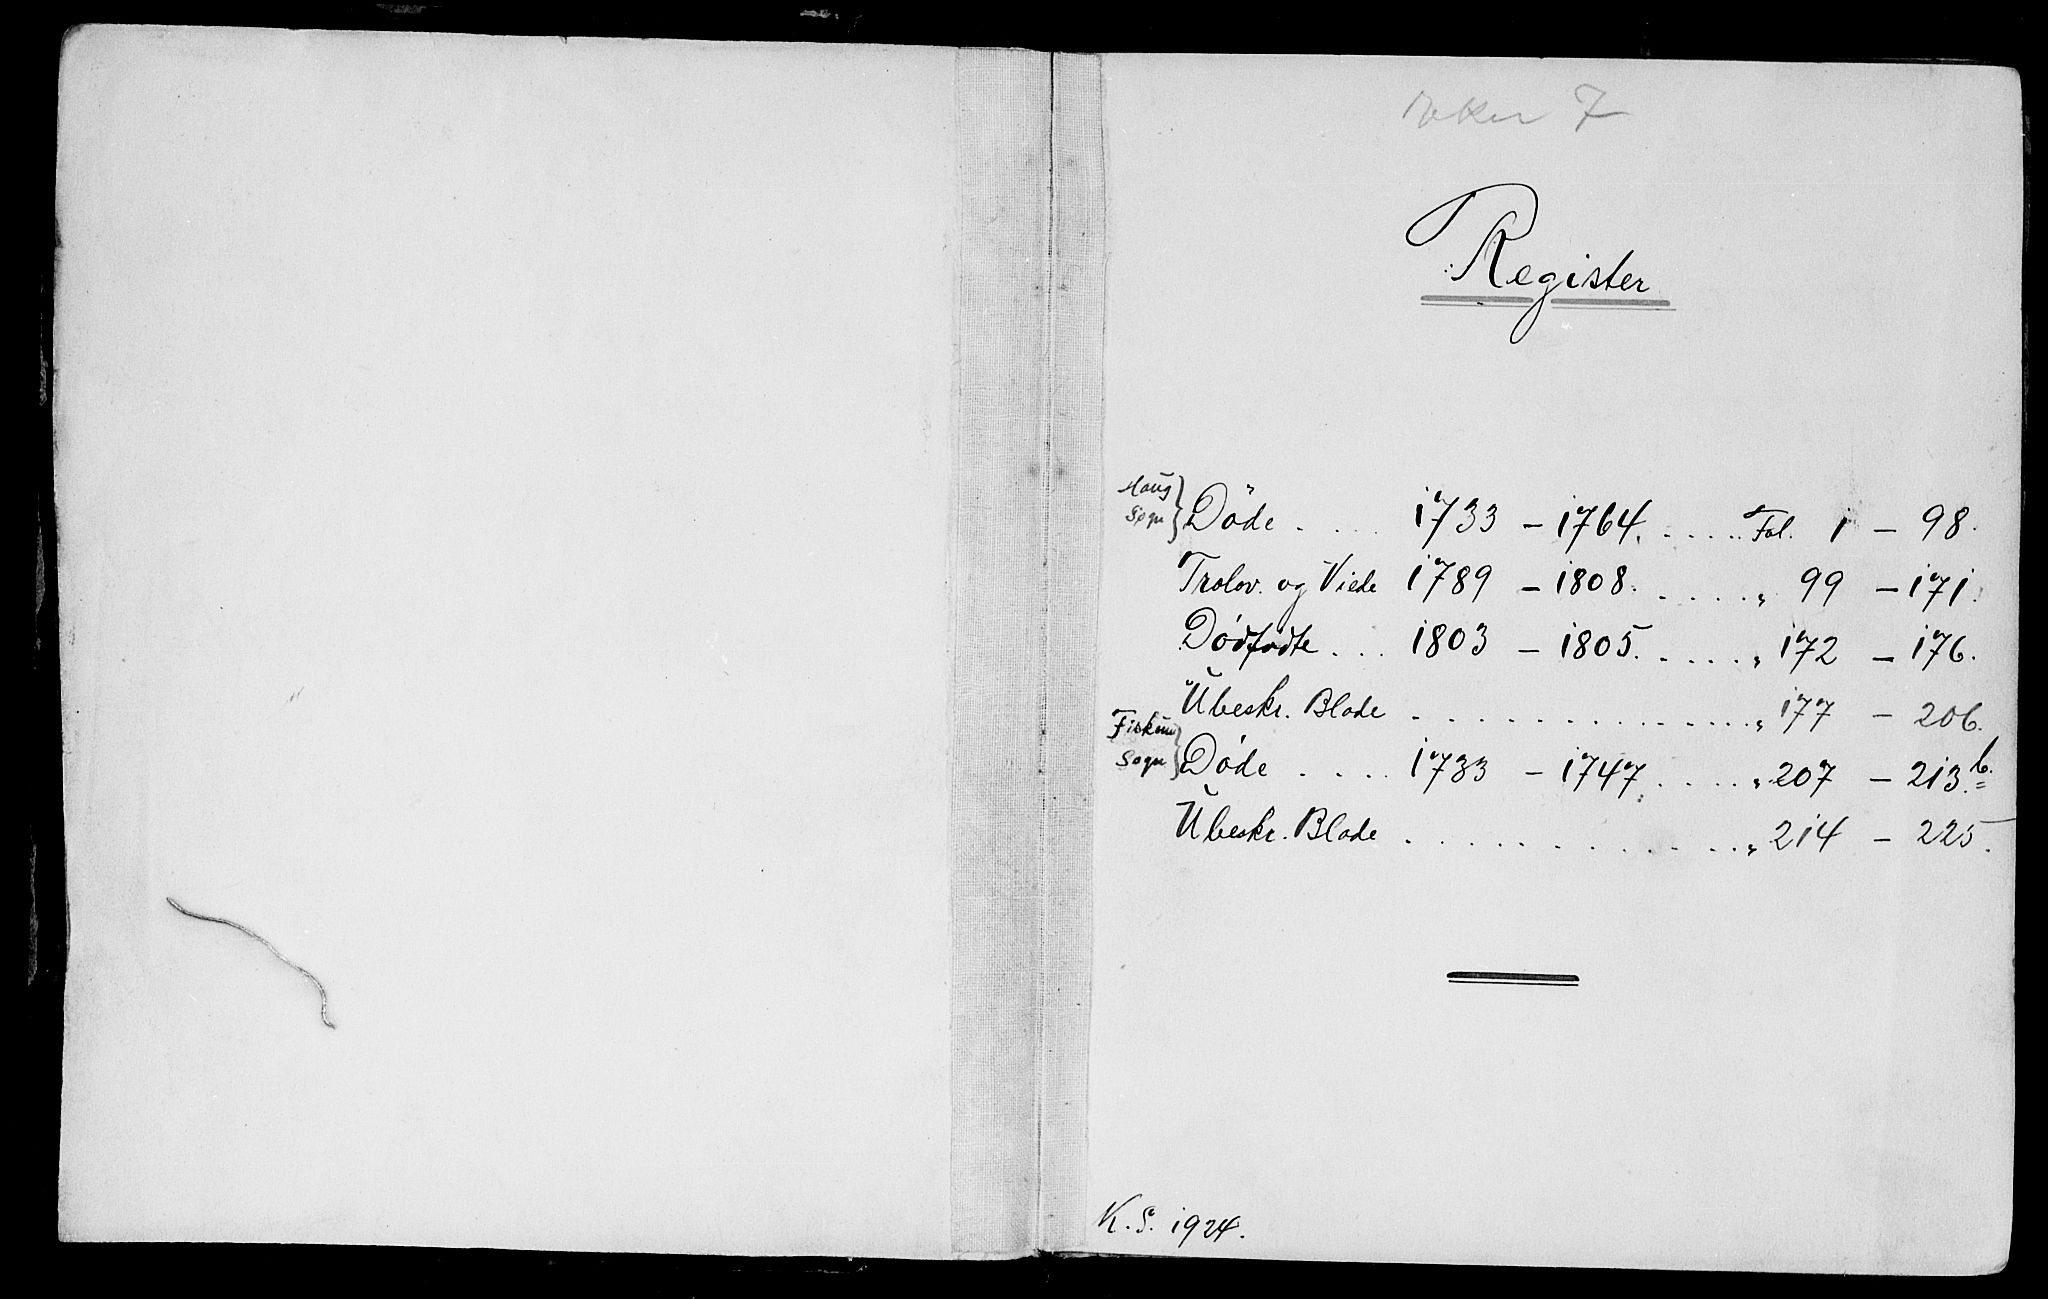 7
Register
Haug
Sogn
Døde . . . . 1733 – 1764. . . . . . Fol. 1 – 98.
Trolov. og Viede 1789 – 1808. . . . . „ 99 – 171.
Dødfødte . . . 1803 – 1805. . . . . „ 172 – 176.
Ubeskr. Blade . . . . . . . . . . . . . . „ 177 – 206.
Fiskum
Sogn
Døde . . . . 1733 – 1747 . . . . „ 207 – 213.b.
Ubeskr. Blade . . . . . . . . . . . . . „ 214 – 225.
K. S. 1924.